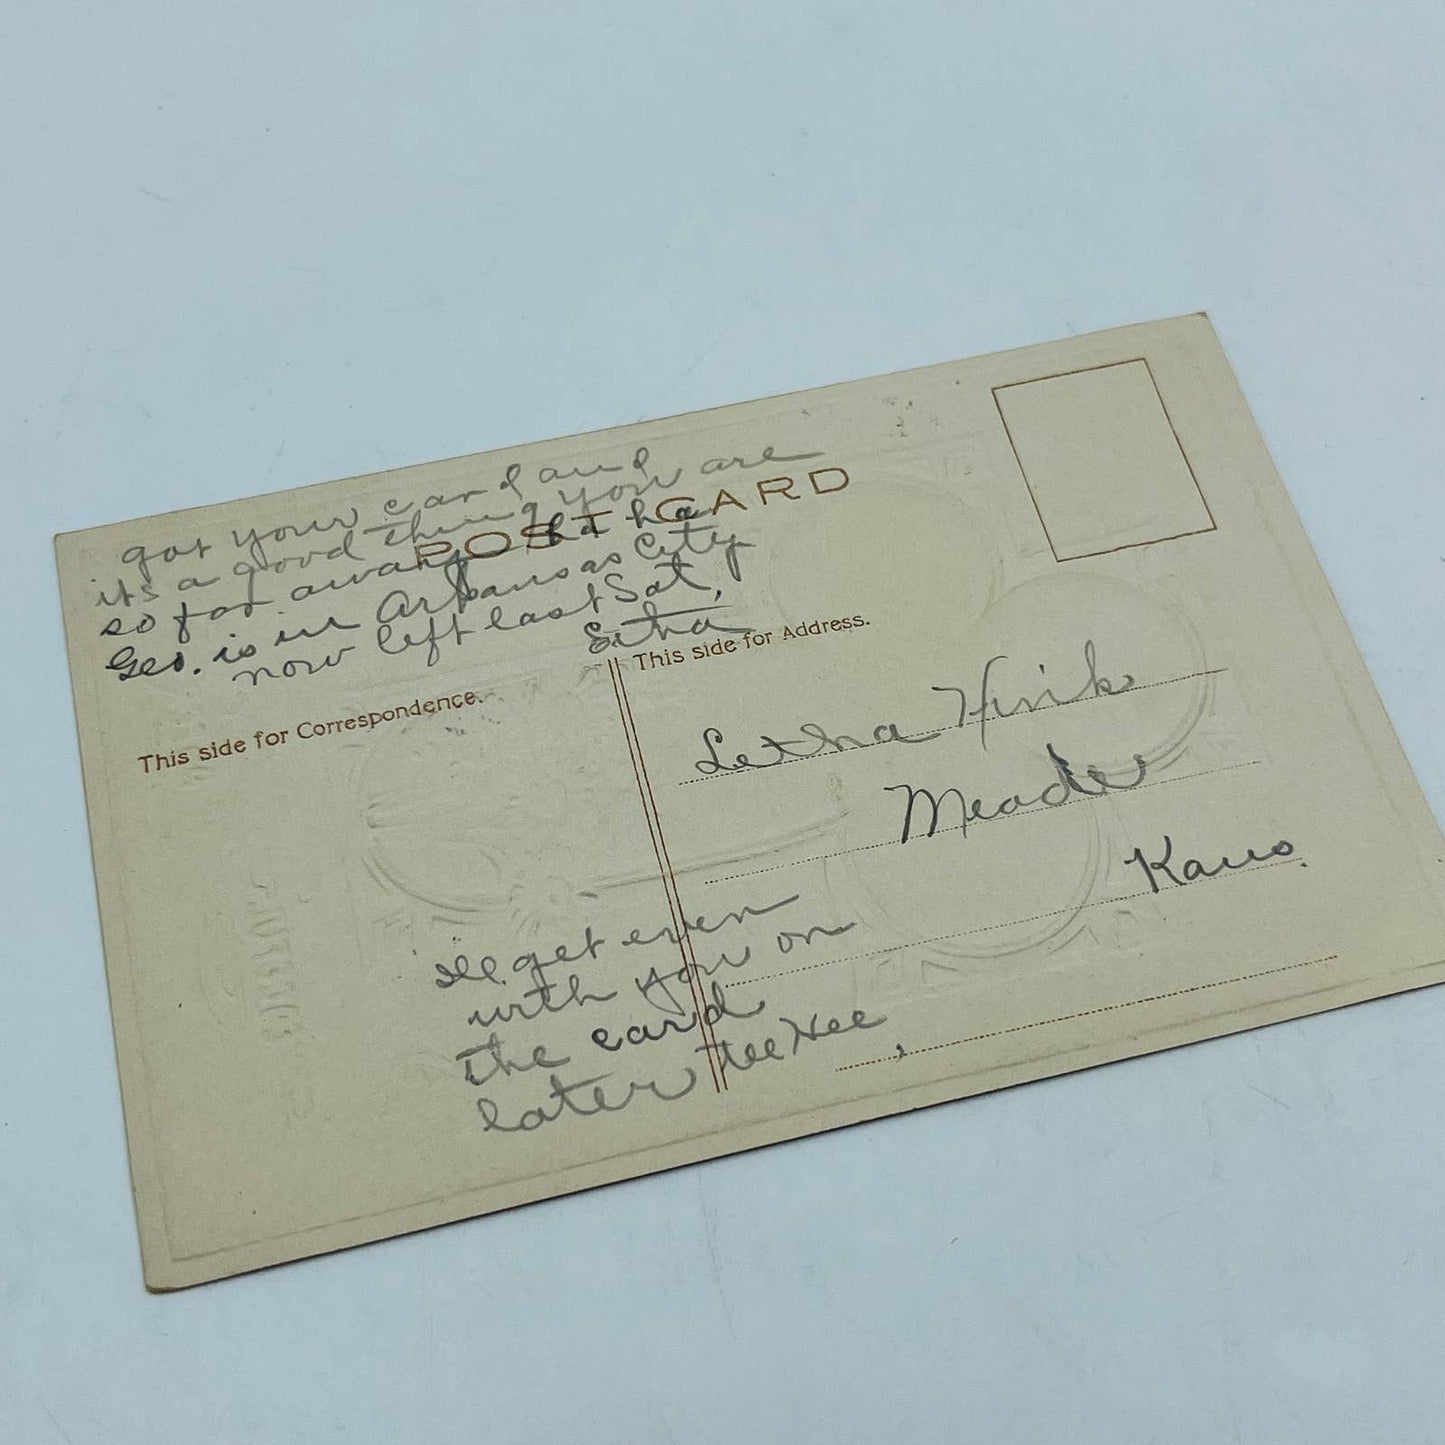 got your card and
its a good thing you are
so far away Ha ha
Geo. is in Arkansas City
now left last Sat,
Etha
POST CARD
This side for Correspondence.
This side for Address.
Letha Hink
Meade
Kans.
Ill get even
with you on
the card
later Tee Hee,